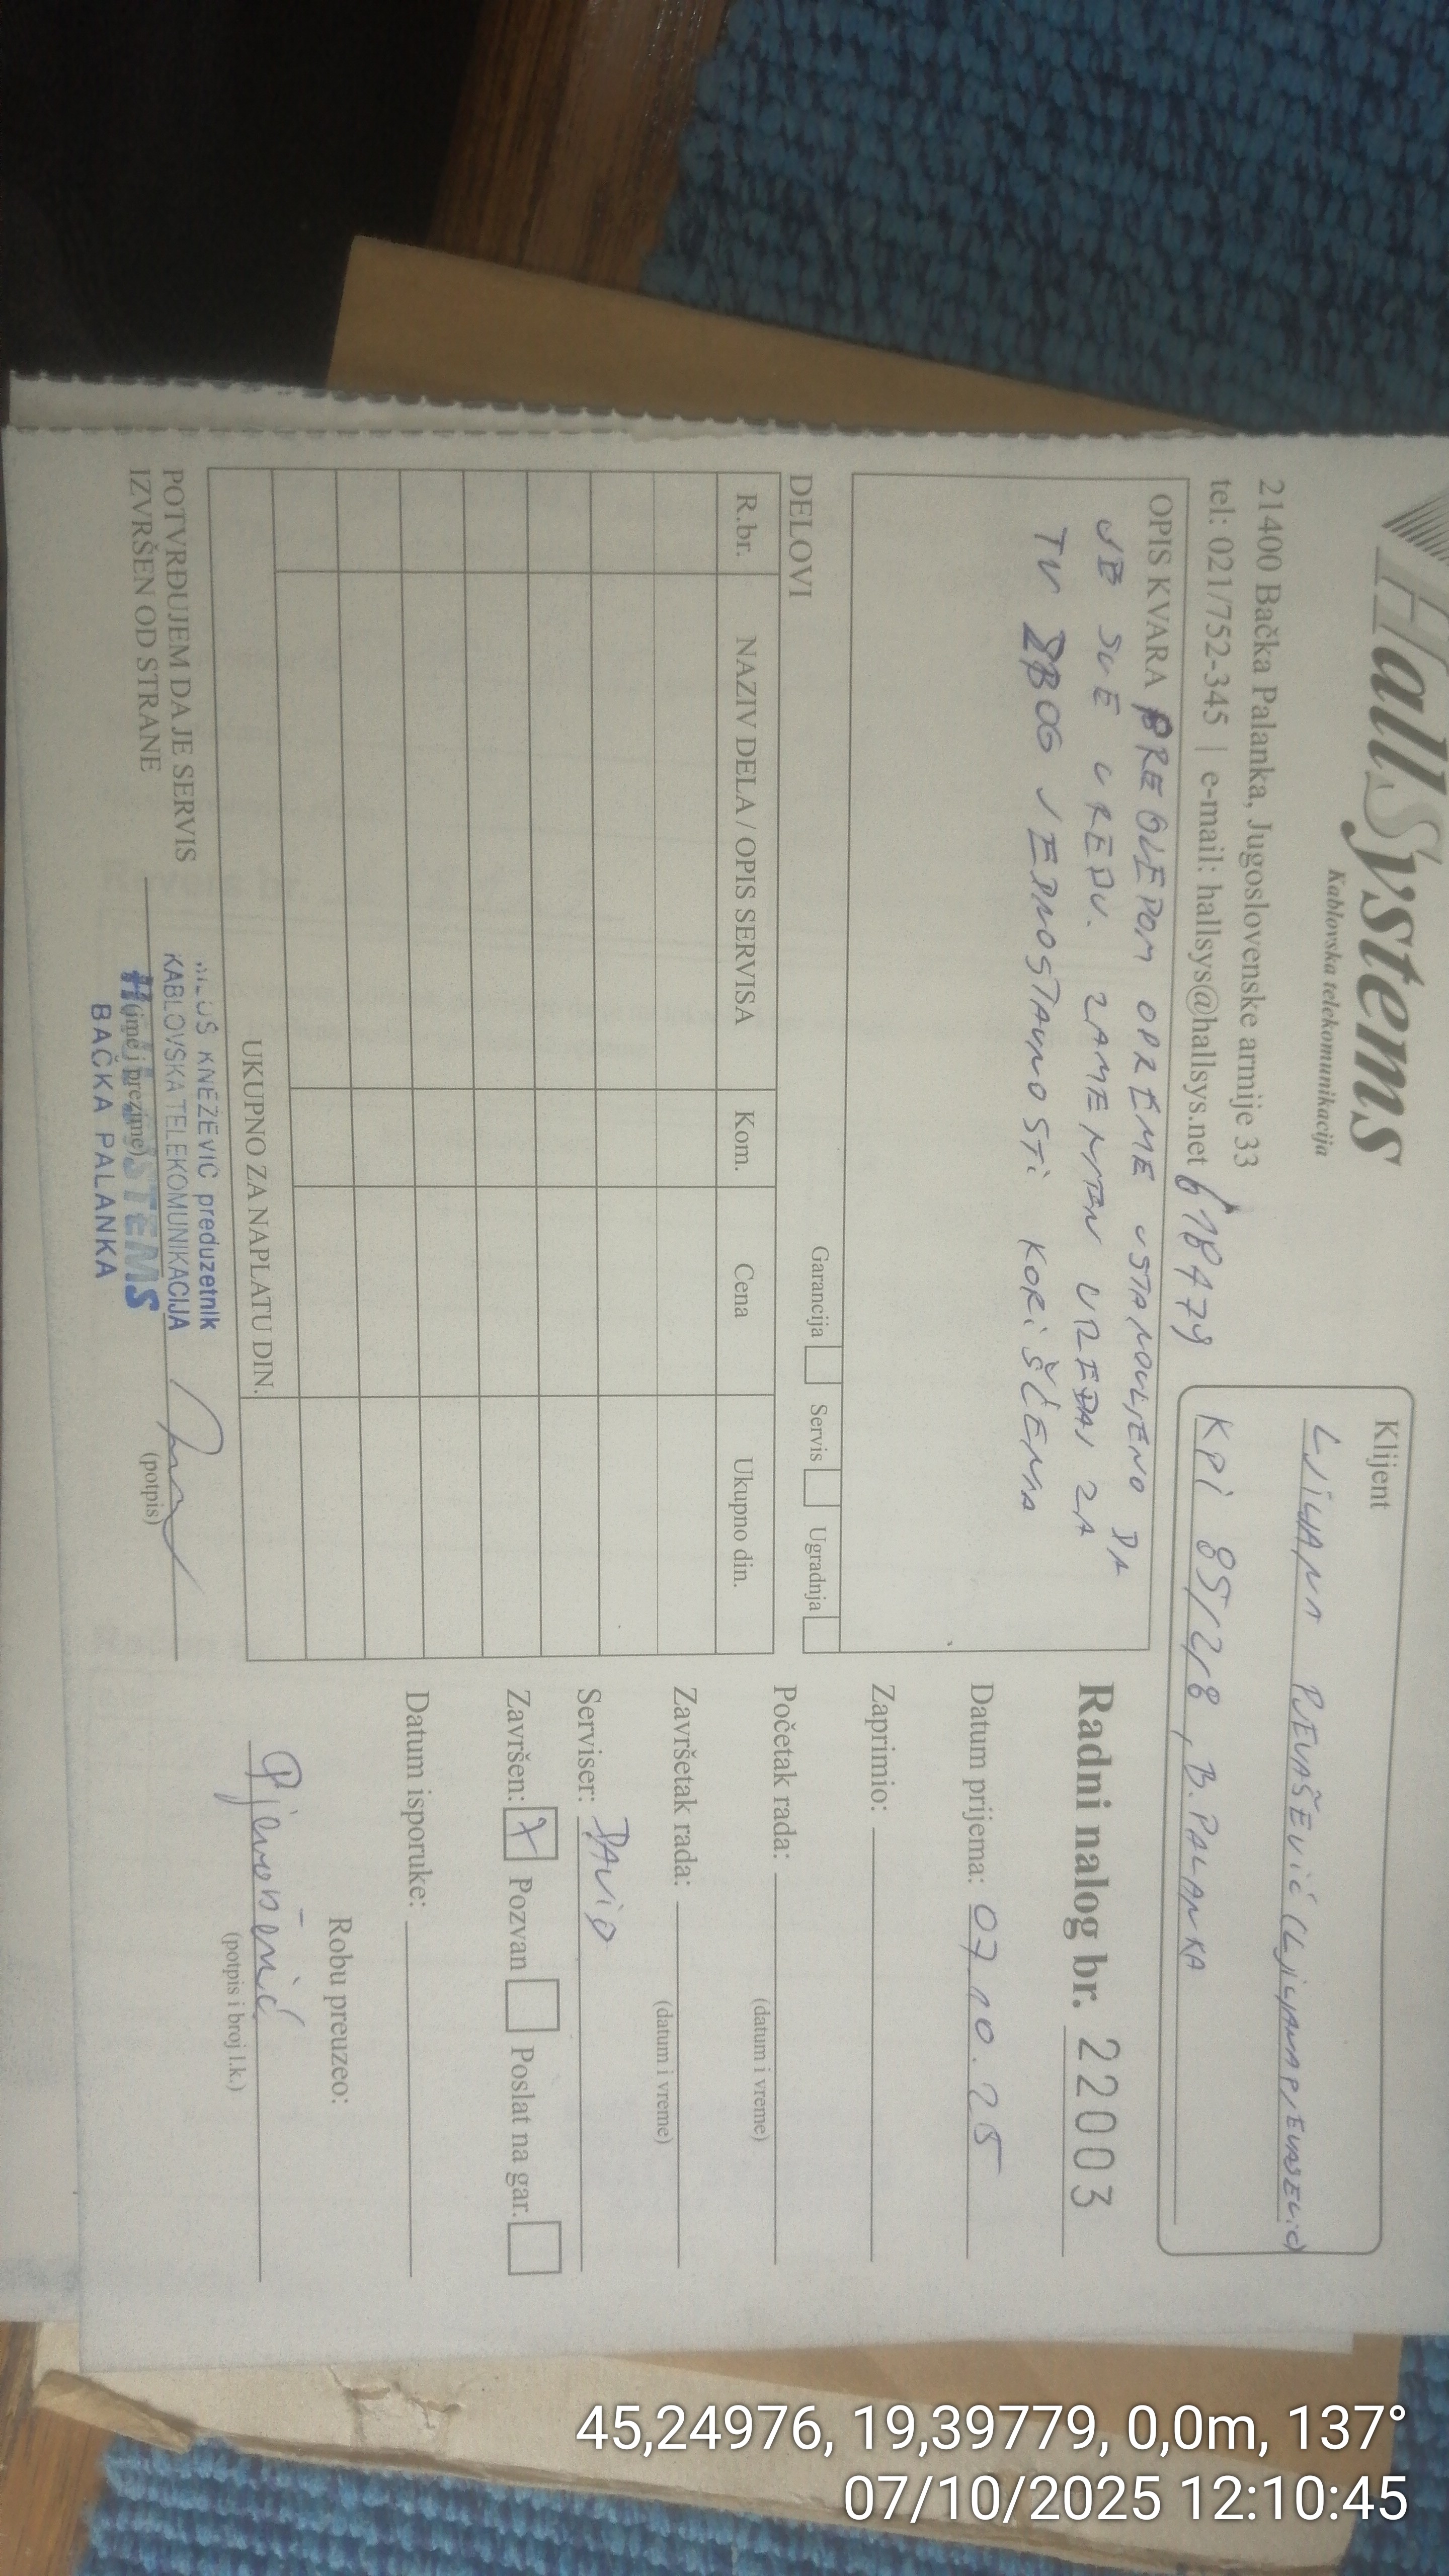 HallSystems
Kablovska telekomunikacija
21400 Bačka Palanka, Jugoslovenske armije 33
tel: 021/752-345 | e-mail: hallsys@hallsys.net 618479
Klijent
LJILJANA PJEVAŠEVIĆ (LJILJANAPJEVASEVIC)
KPI 85/2/8, B.PALANKA
OPIS KVARA PREGLEDOM OPREME USTANOVLJENO DA
JE SVE U REDU. ZAMENJEN UREĐAJ ZA
TV ZBOG JEDNOSTAVNOSTI KORIŠĆENJA
Garancija Servis Ugradnja
DELOVI
R.br. NAZIV DELA / OPIS SERVISA Kom. Cena Ukupno din.
UKUPNO ZA NAPLATU DIN.
POTVRĐUJEM DA JE SERVIS
IZVRŠEN OD STRANE
(ime i prezime)
(potpis)
KNEŽEVIĆ preduzetnik
KABLOVSKA TELEKOMUNIKACIJA
BAČKA PALANKA
Radni nalog br. 22003
Datum prijema: 07.10.25
Zaprimio:
Početak rada:
(datum i vreme)
Završetak rada:
(datum i vreme)
Serviser: DAVID
Završen: X Pozvan Poslat na gar.
Datum isporuke:
Robu preuzeo:
Pjevašević
(potpis i broj l.k.)
45,24976, 19,39779, 0,0m, 137°
07/10/2025 12:10:45